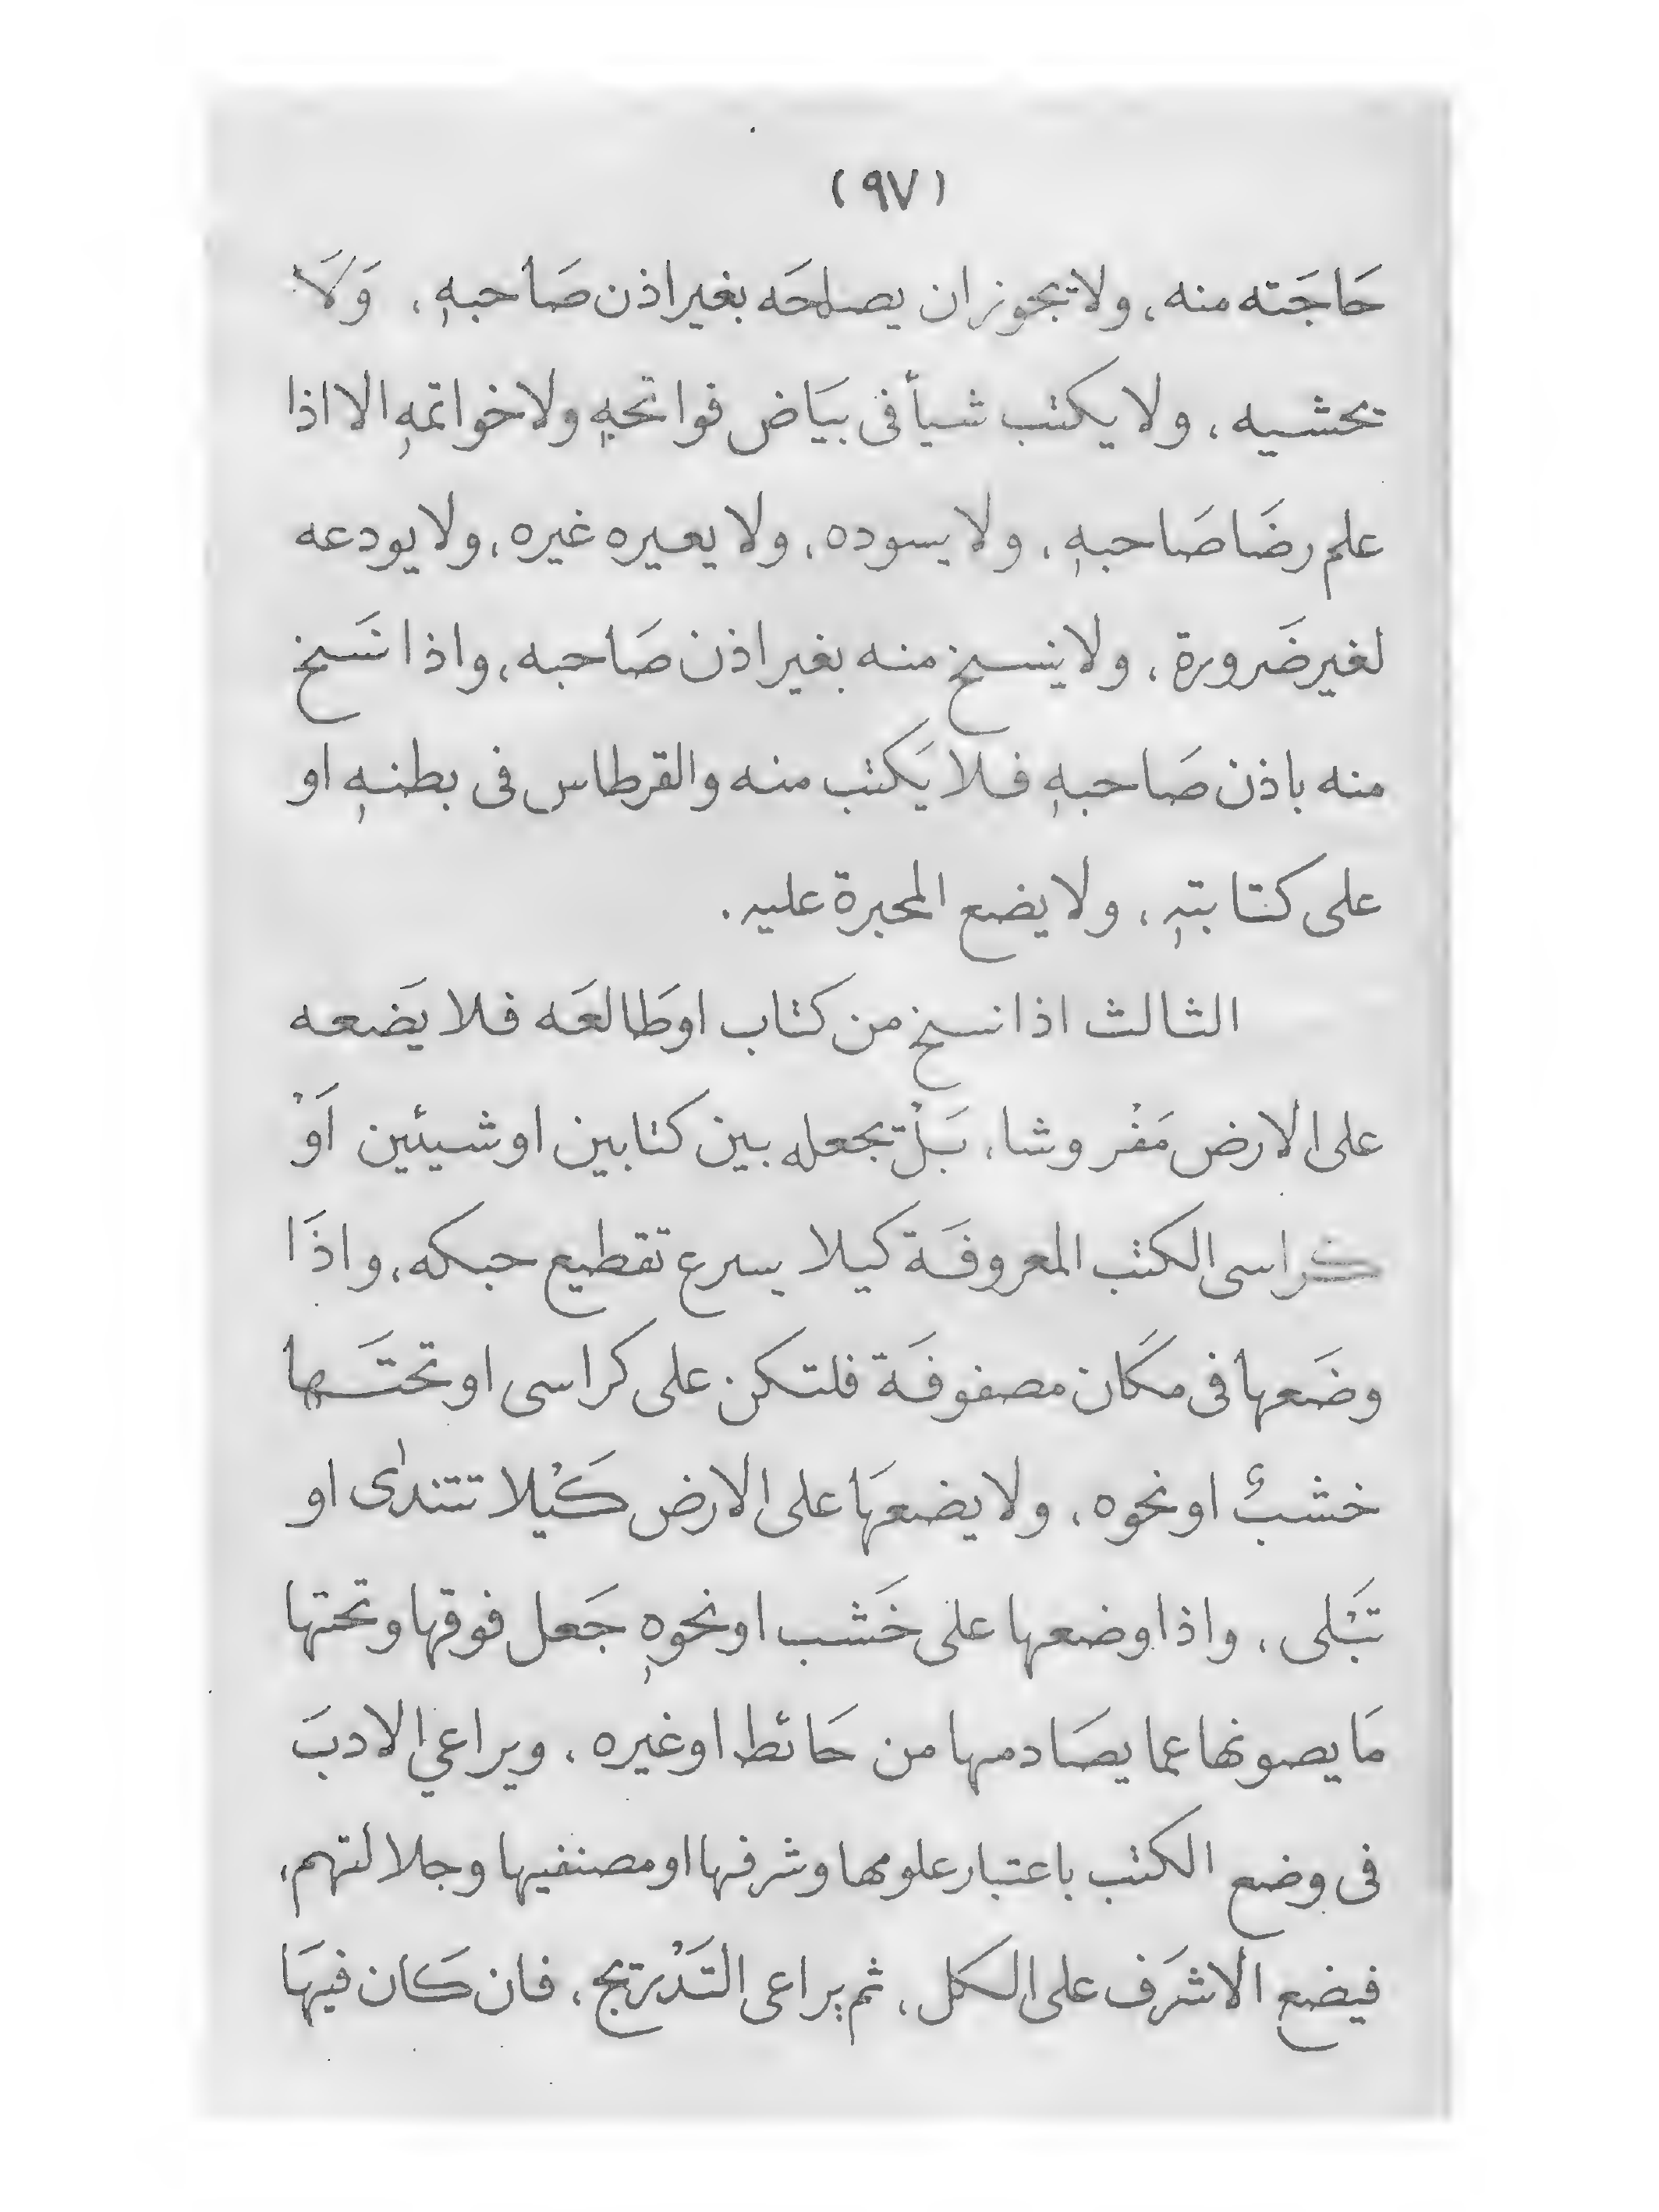 (٩٧)
حَاجَته منه، ولا يجوز ان يصلحَه بغير اذن صَاحبهٖ، وَلَا
يحشيه، ولا يكتب شيأ فى بيَاض فواتحهٖ ولا خواتمهٖ الا اذا
علم رضَا صَاحبهٖ، ولا يسوده، ولا يعيره غيره، ولا يودعه
لغير ضَرورة، ولا ينسخ منه بغير اذن صَاحبه، واذا نسَخ
منه باذن صَاحبهٖ فلا يَكتب منه والقرطاس فى بطنهٖ او
على كتابتهٖ، ولا يضع المحبرة عليه.
الثالث اذا نسخ من كتاب او طَالعَه فلا يَضعه
على الارض مَفْروشا، بَلْ يجعله بين كتابين او شيئين اَوْ
كراسى الكتب المعروفَة كيلا يسرع تقطيع حبكه، واذَا
وضَعها فى مكَان مصفوفَة فلتكن على كراسى او تحتَها
خشبٌ او نحوه، ولا يضعهَا على الارض كَيْلا تتندىٰ او
تَبْلى، واذا وضعها على خَشب او نحوهٖ جَعل فوقها وتحتها
مَا يصونها عما يصَادمها من حَائط او غيره، ويراعي الادبَ
فى وضع الكتب باعتبار علومها وشرفها او مصنفيها وجلالتهم،
فيضع الاشرَف على الكل، ثم يراعى التَدْريج، فان كَان فيهَا